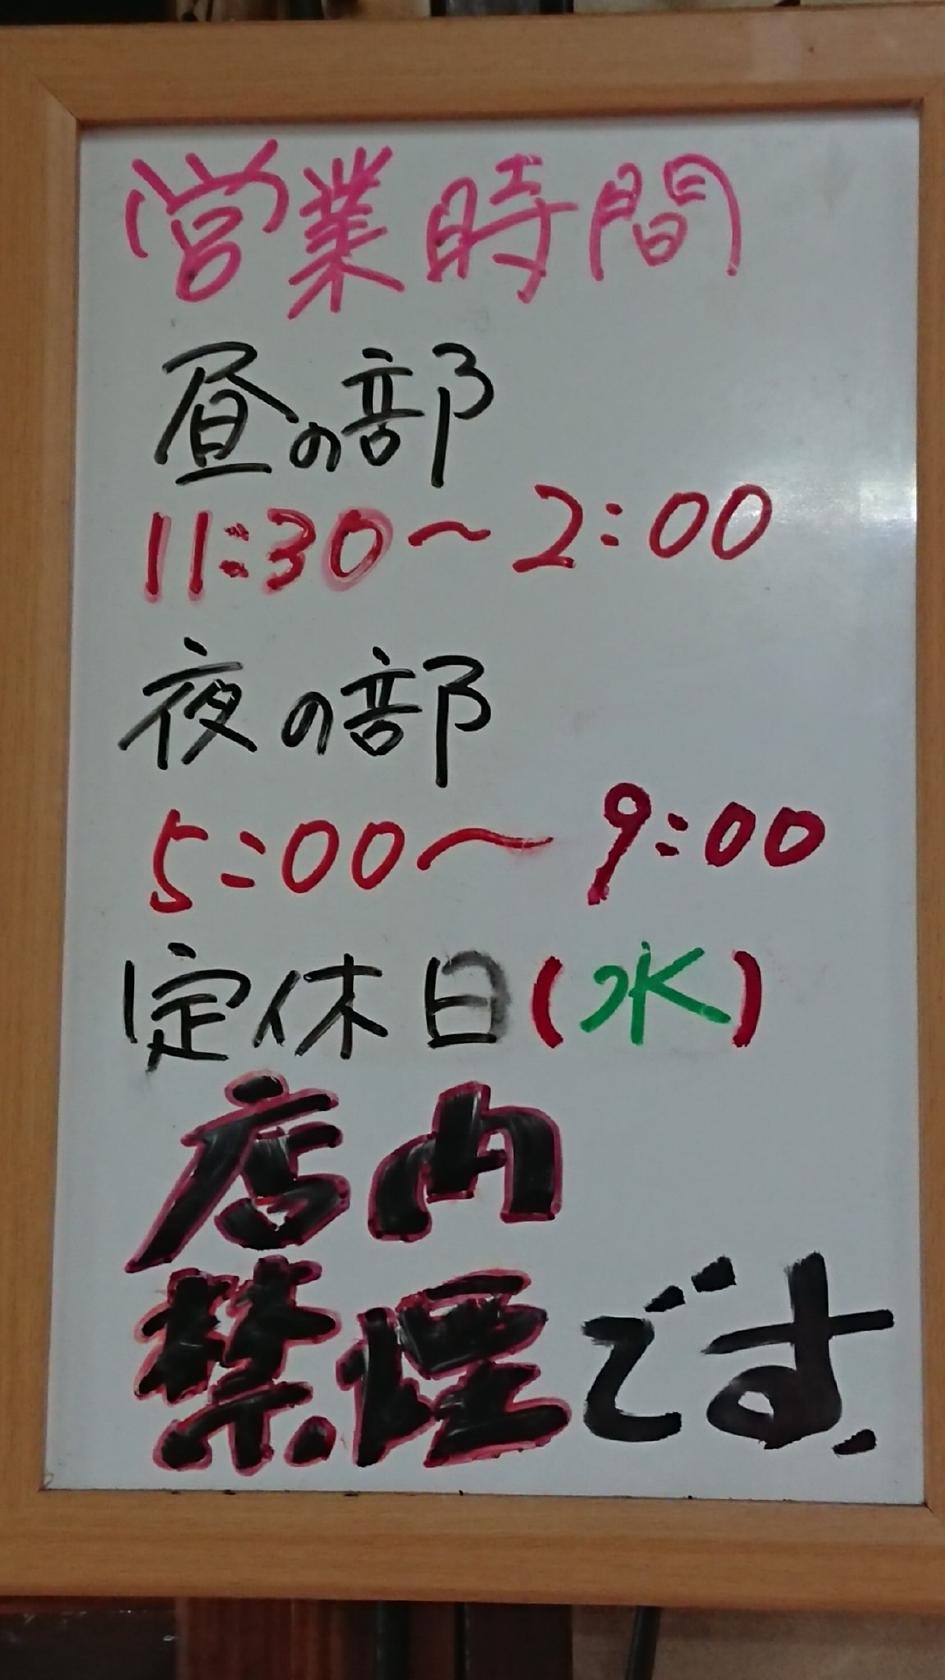 営業時間
昼の部
11:30〜2:00
夜の部
5:00〜9:00
定休日(水)
店内
禁煙です.